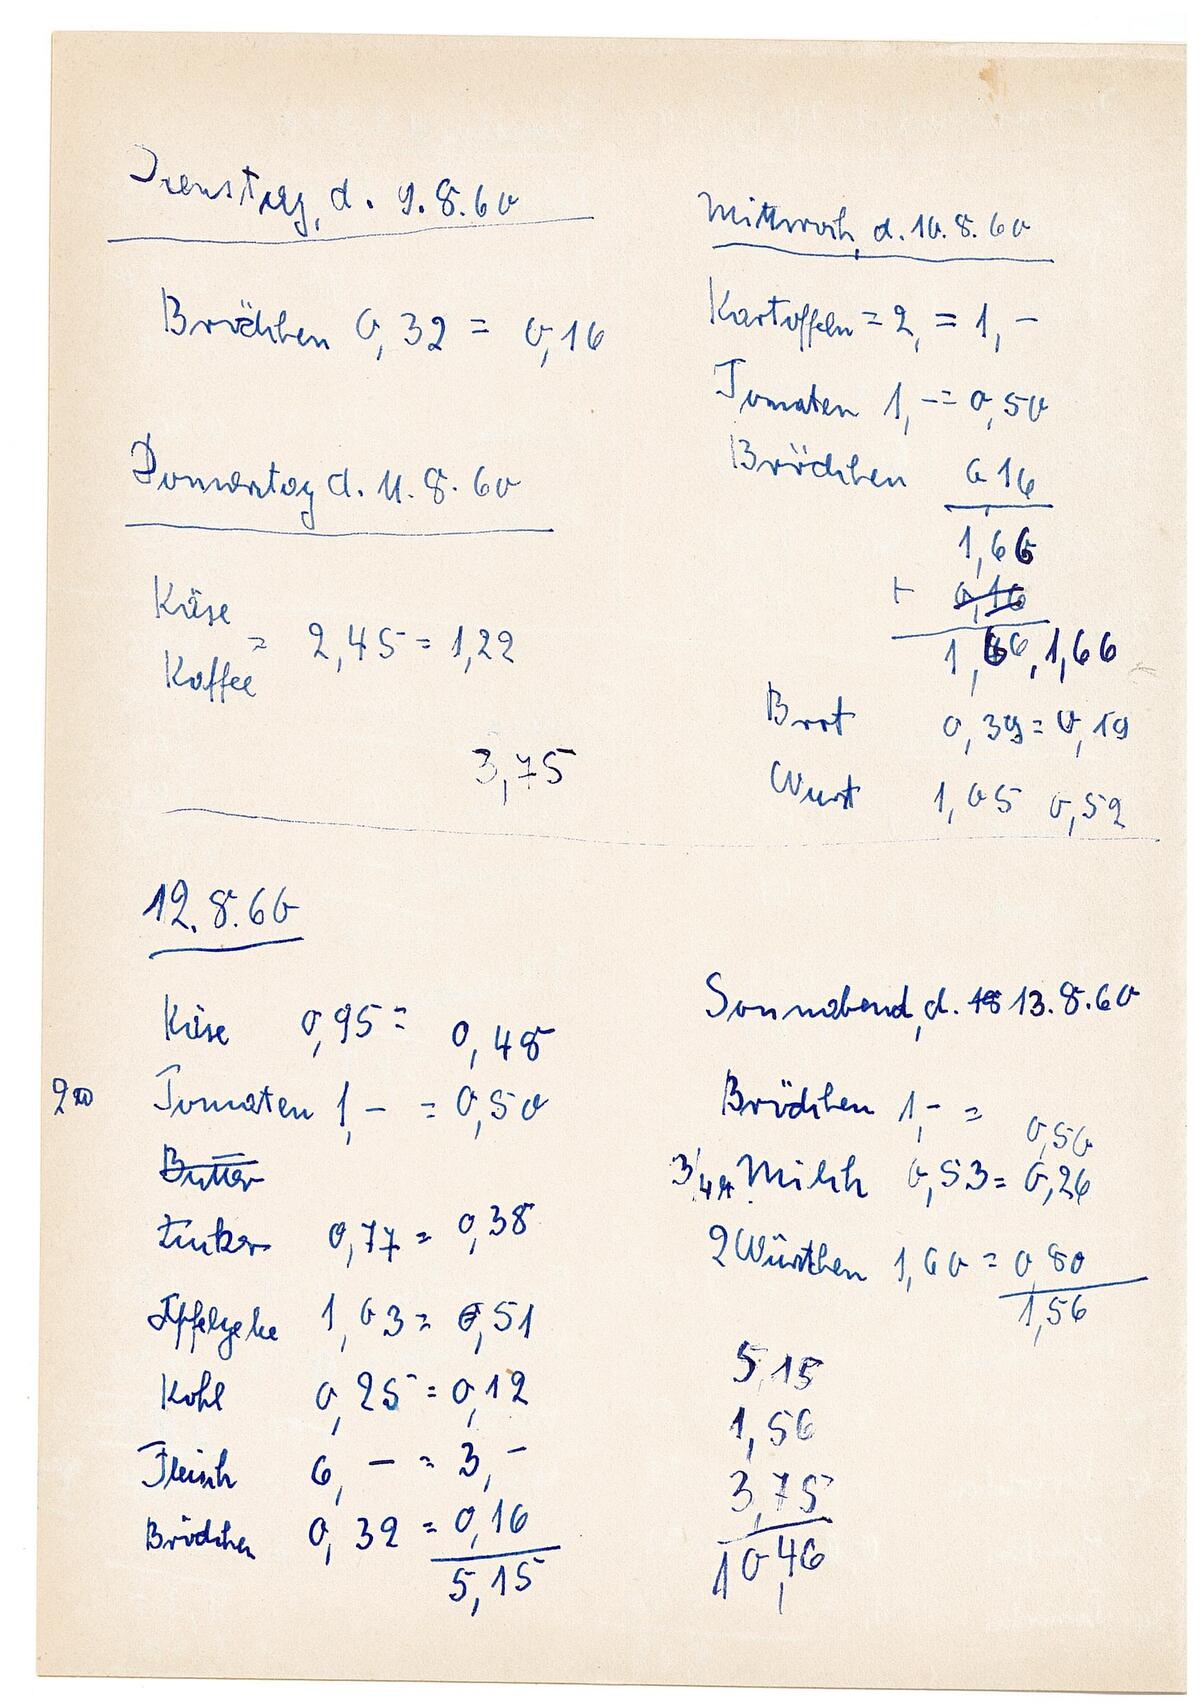 Dienstag, d. 9.8.60
Brödchen 0,32 = 0,16
Mittwoch, d. 10.8.60
Kartoffeln = 2, = 1,-
Tomaten 1,- = 0,50
Brödchen 0,16
1,66
+ 0,16
1,66, 1,66
Brot 0,39 = 0,19
Wurst 1,05 0,52
Donnerstag d. 11.8.60
Käse
= 2,45 = 1,22
Kaffee
3,75
12.8.60
Käse 0,95 = 0,48
Tomaten 1,- = 0,50
Butter
Zucker 0,77 = 0,38
Apfelgelee 1,03 = 0,51
Kohl 0,25 = 0,12
Fleisch 6,- = 3,-
Brödchen 0,32 = 0,16
5,15
Sonnabend, d. 18 13.8.60
Brödchen 1,- = 0,50
3/4 Milch 0,53 = 0,26
2 Würstchen 1,60 = 0,80
1,56
5,15
1,56
3,75
10,46